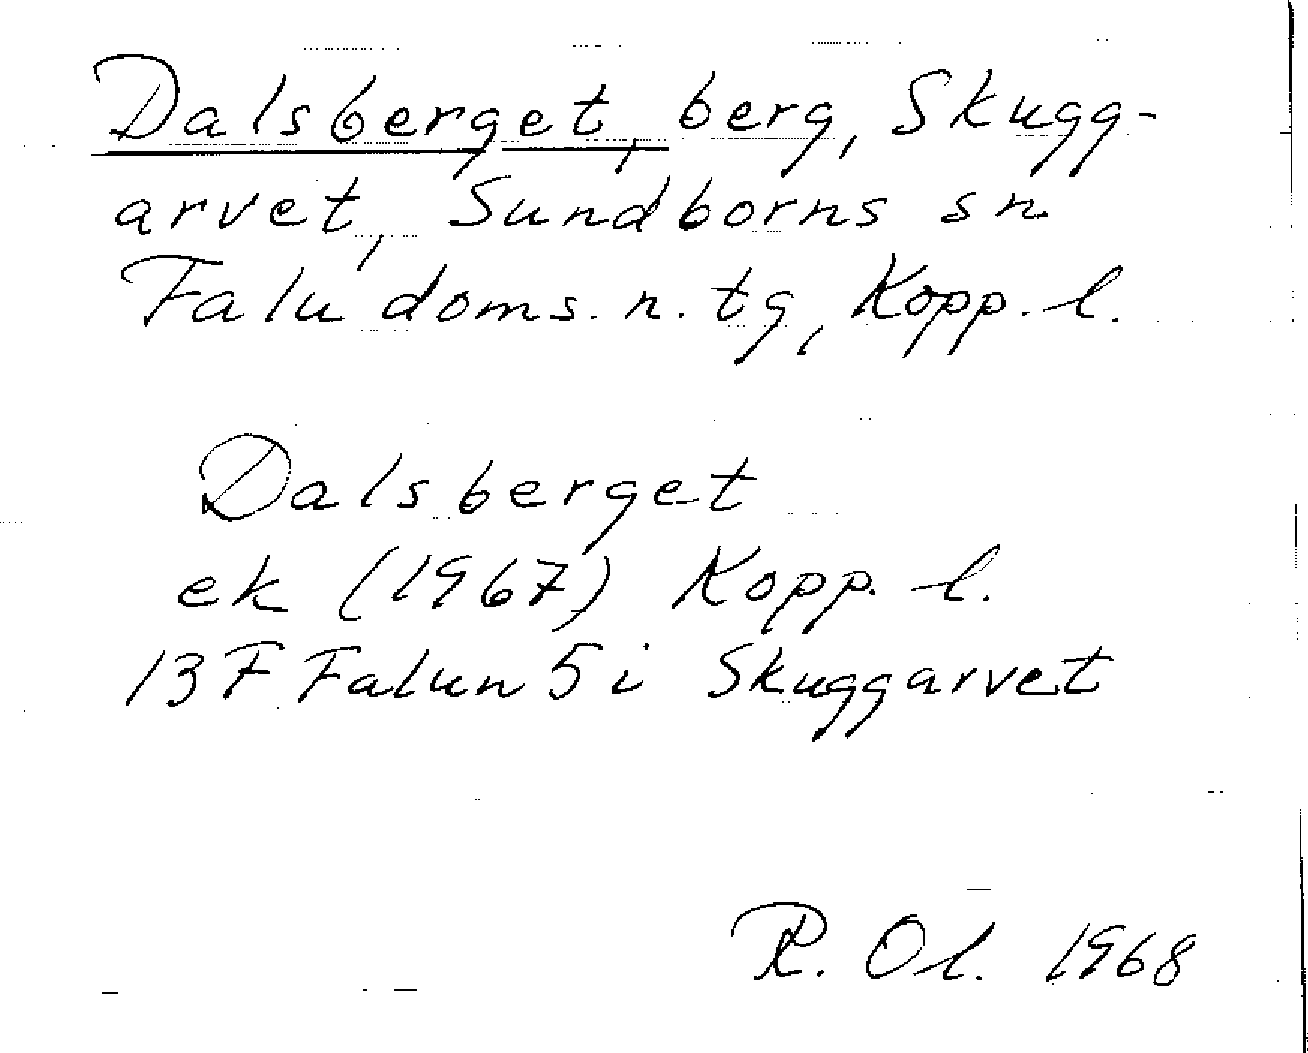 Dalsberget, berg, Skugg-
arvet, Sundborns sn
Falu doms. n. tg, Kopp. l.
Dalsberget
ek (1967) Kopp. l.
13 F Falun 5 i Skuggarvet
R. Ol. 1968